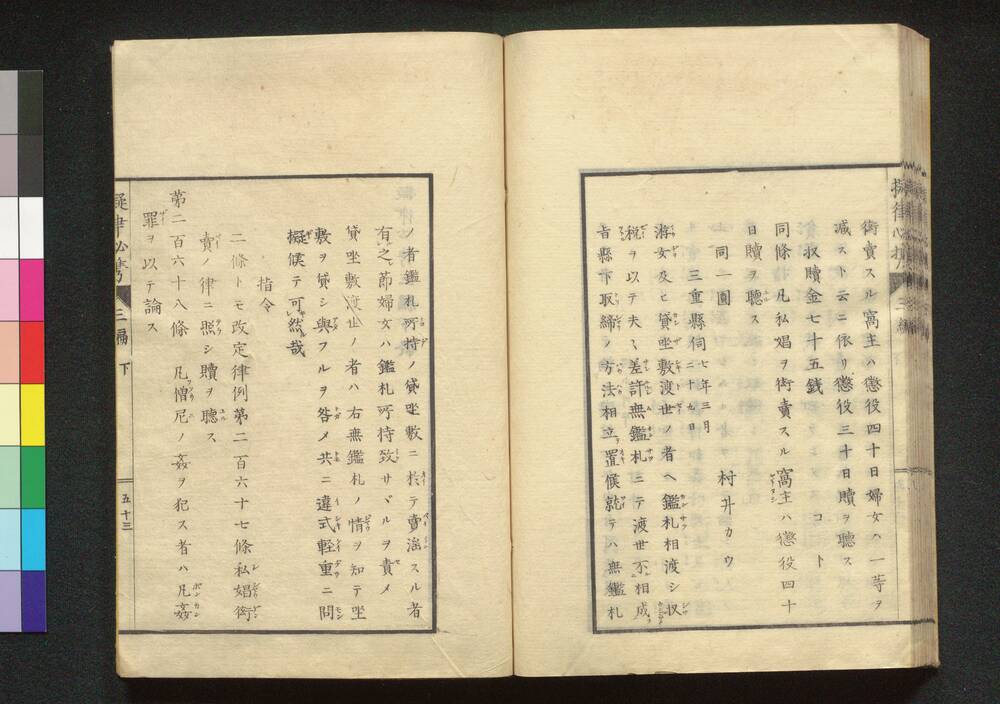 衒賣スル窩主ハ懲役四十日婦女ハ一等ヲ
減スト云ニ依リ懲役三十日贖ヲ聽ス
収贖金七十五錢 コト
同條凡私娼ヲ衒賣スル窩主ハ懲役四十
日贖ヲ聽ス
同一圓 村井カウ
三重縣伺 七年三月二十九日
游女及ヒ貸坐敷渡世ノ者ヘ鑑札相渡シ収
税ヲ以テ夫々差許無鑑札ニテ渡世不相成
旨縣下取締ノ方法相立置候就テハ無鑑札
ノ者鑑札所持ノ貸坐敷ニ於テ賣淫スル者
有之節婦女ハ鑑札所持致サヾルヲ責メ
貸坐敷渡世ノ者ハ右無鑑札ノ情ヲ知テ坐
敷ヲ貸シ與フルヲ咎メ共ニ違式軽重ニ問
擬候テ可然哉
指令
二條トモ改定律例第二百六十七條私娼衒
賣ノ律ニ照シ贖ヲ聽ス
第二百六十八條 凡僧尼ノ姦ヲ犯ス者ハ凡姦
罪ヲ以テ論ス
擬律必携 三編 下 五十三